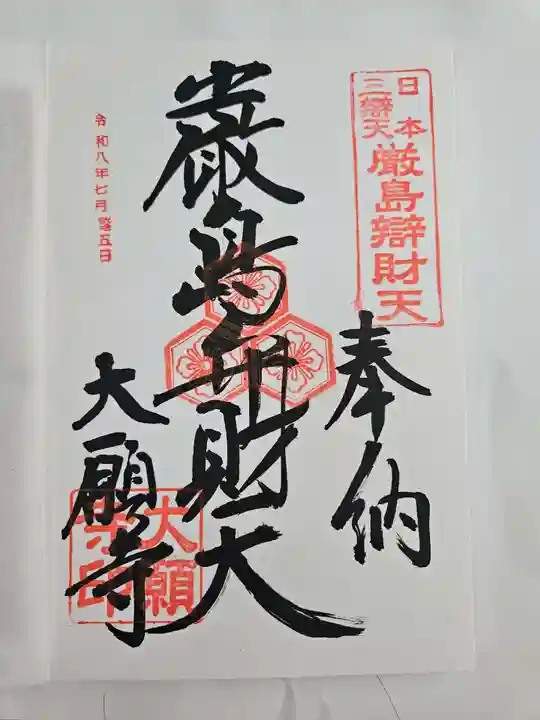 日本
三辯天
厳島辯財天
奉納
嚴島弁財天
大願寺
大願
寺印
令和八年七月
五日